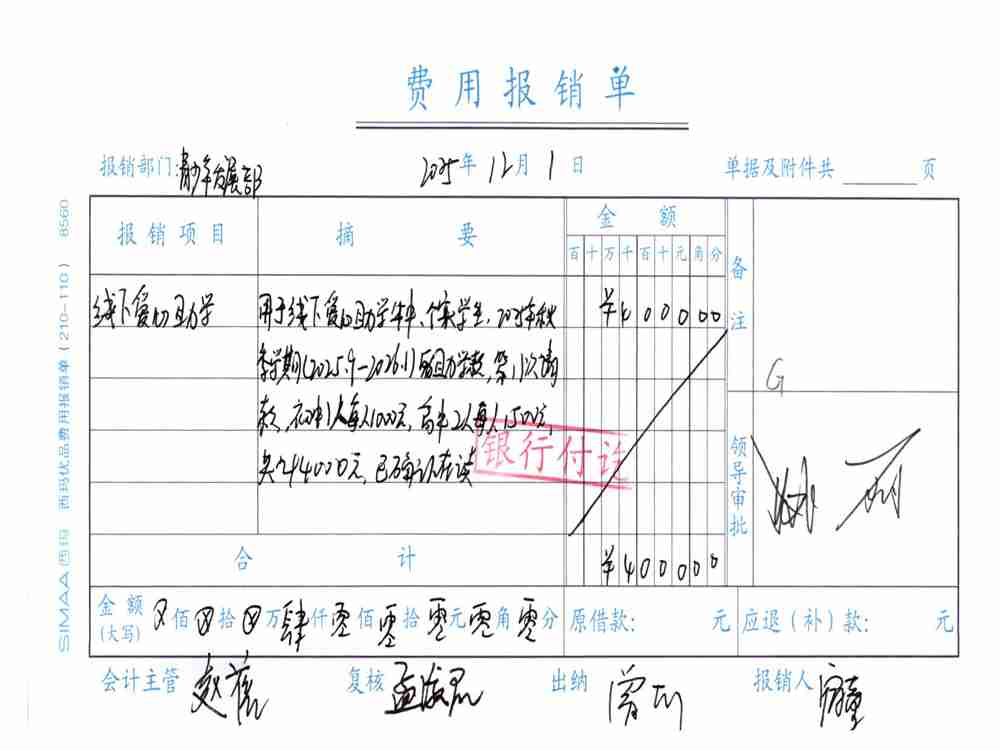 费用报销单
报销部门:青少年发展部 2025年12月1日 单据及附件共 页
报销项目 摘要 金额 备注
百十万千百十元角分
线下爱心助学 用于线下爱心助学 学生,2025年秋 ¥400000
季学期(2025.9-2026.1) 助学款,第1次
款,初中1人每人1000元,高中2人每人1500元,
共计4000元,已确认在读
银行付讫
G
领导审批
合计 ¥400000
金额(大写) 佰 拾 万肆仟零佰零拾零元零角零分 原借款: 元 应退(补)款: 元
会计主管 赵 复核 孟 出纳 曾 报销人
SIMAA西玛 西玛优品费用报销单(210-110) 8560